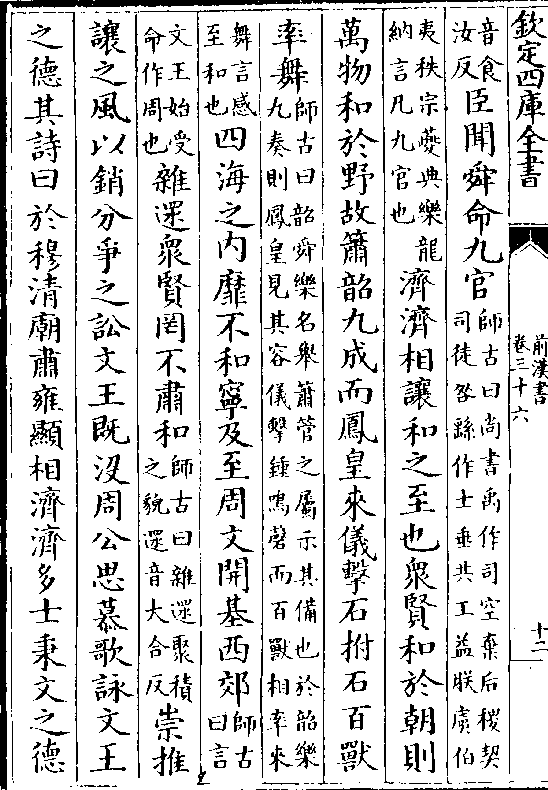 欽定四庫全書
前漢書
卷三十六
十二
音食
汝反
臣聞舜命九官
師古曰尚書禹作司空棄后稷契
司徒咎繇作士垂共工益朕虞伯
夷秩宗夔典樂龍
納言凡九官也
濟濟相讓和之至也衆賢和於朝則
萬物和於野故簫韶九成而鳳皇來儀擊石拊石百獸
率舞
師古曰韶舜樂名舉簫管之屬示其備也於韶樂
九奏則鳳皇見其容儀擊鍾鳴磬而百獸相率來
舞言感
至和也
四海之内靡不和寧及至周文開基西郊
師古
曰言
文王始受
命作周也
雜遝衆賢罔不肅和
師古曰雜遝聚積
之貌遝音大合反
崇推
讓之風以銷分爭之訟文王既没周公思慕歌詠文王
之德其詩曰於穆清廟肅雍顯相濟濟多士秉文之德